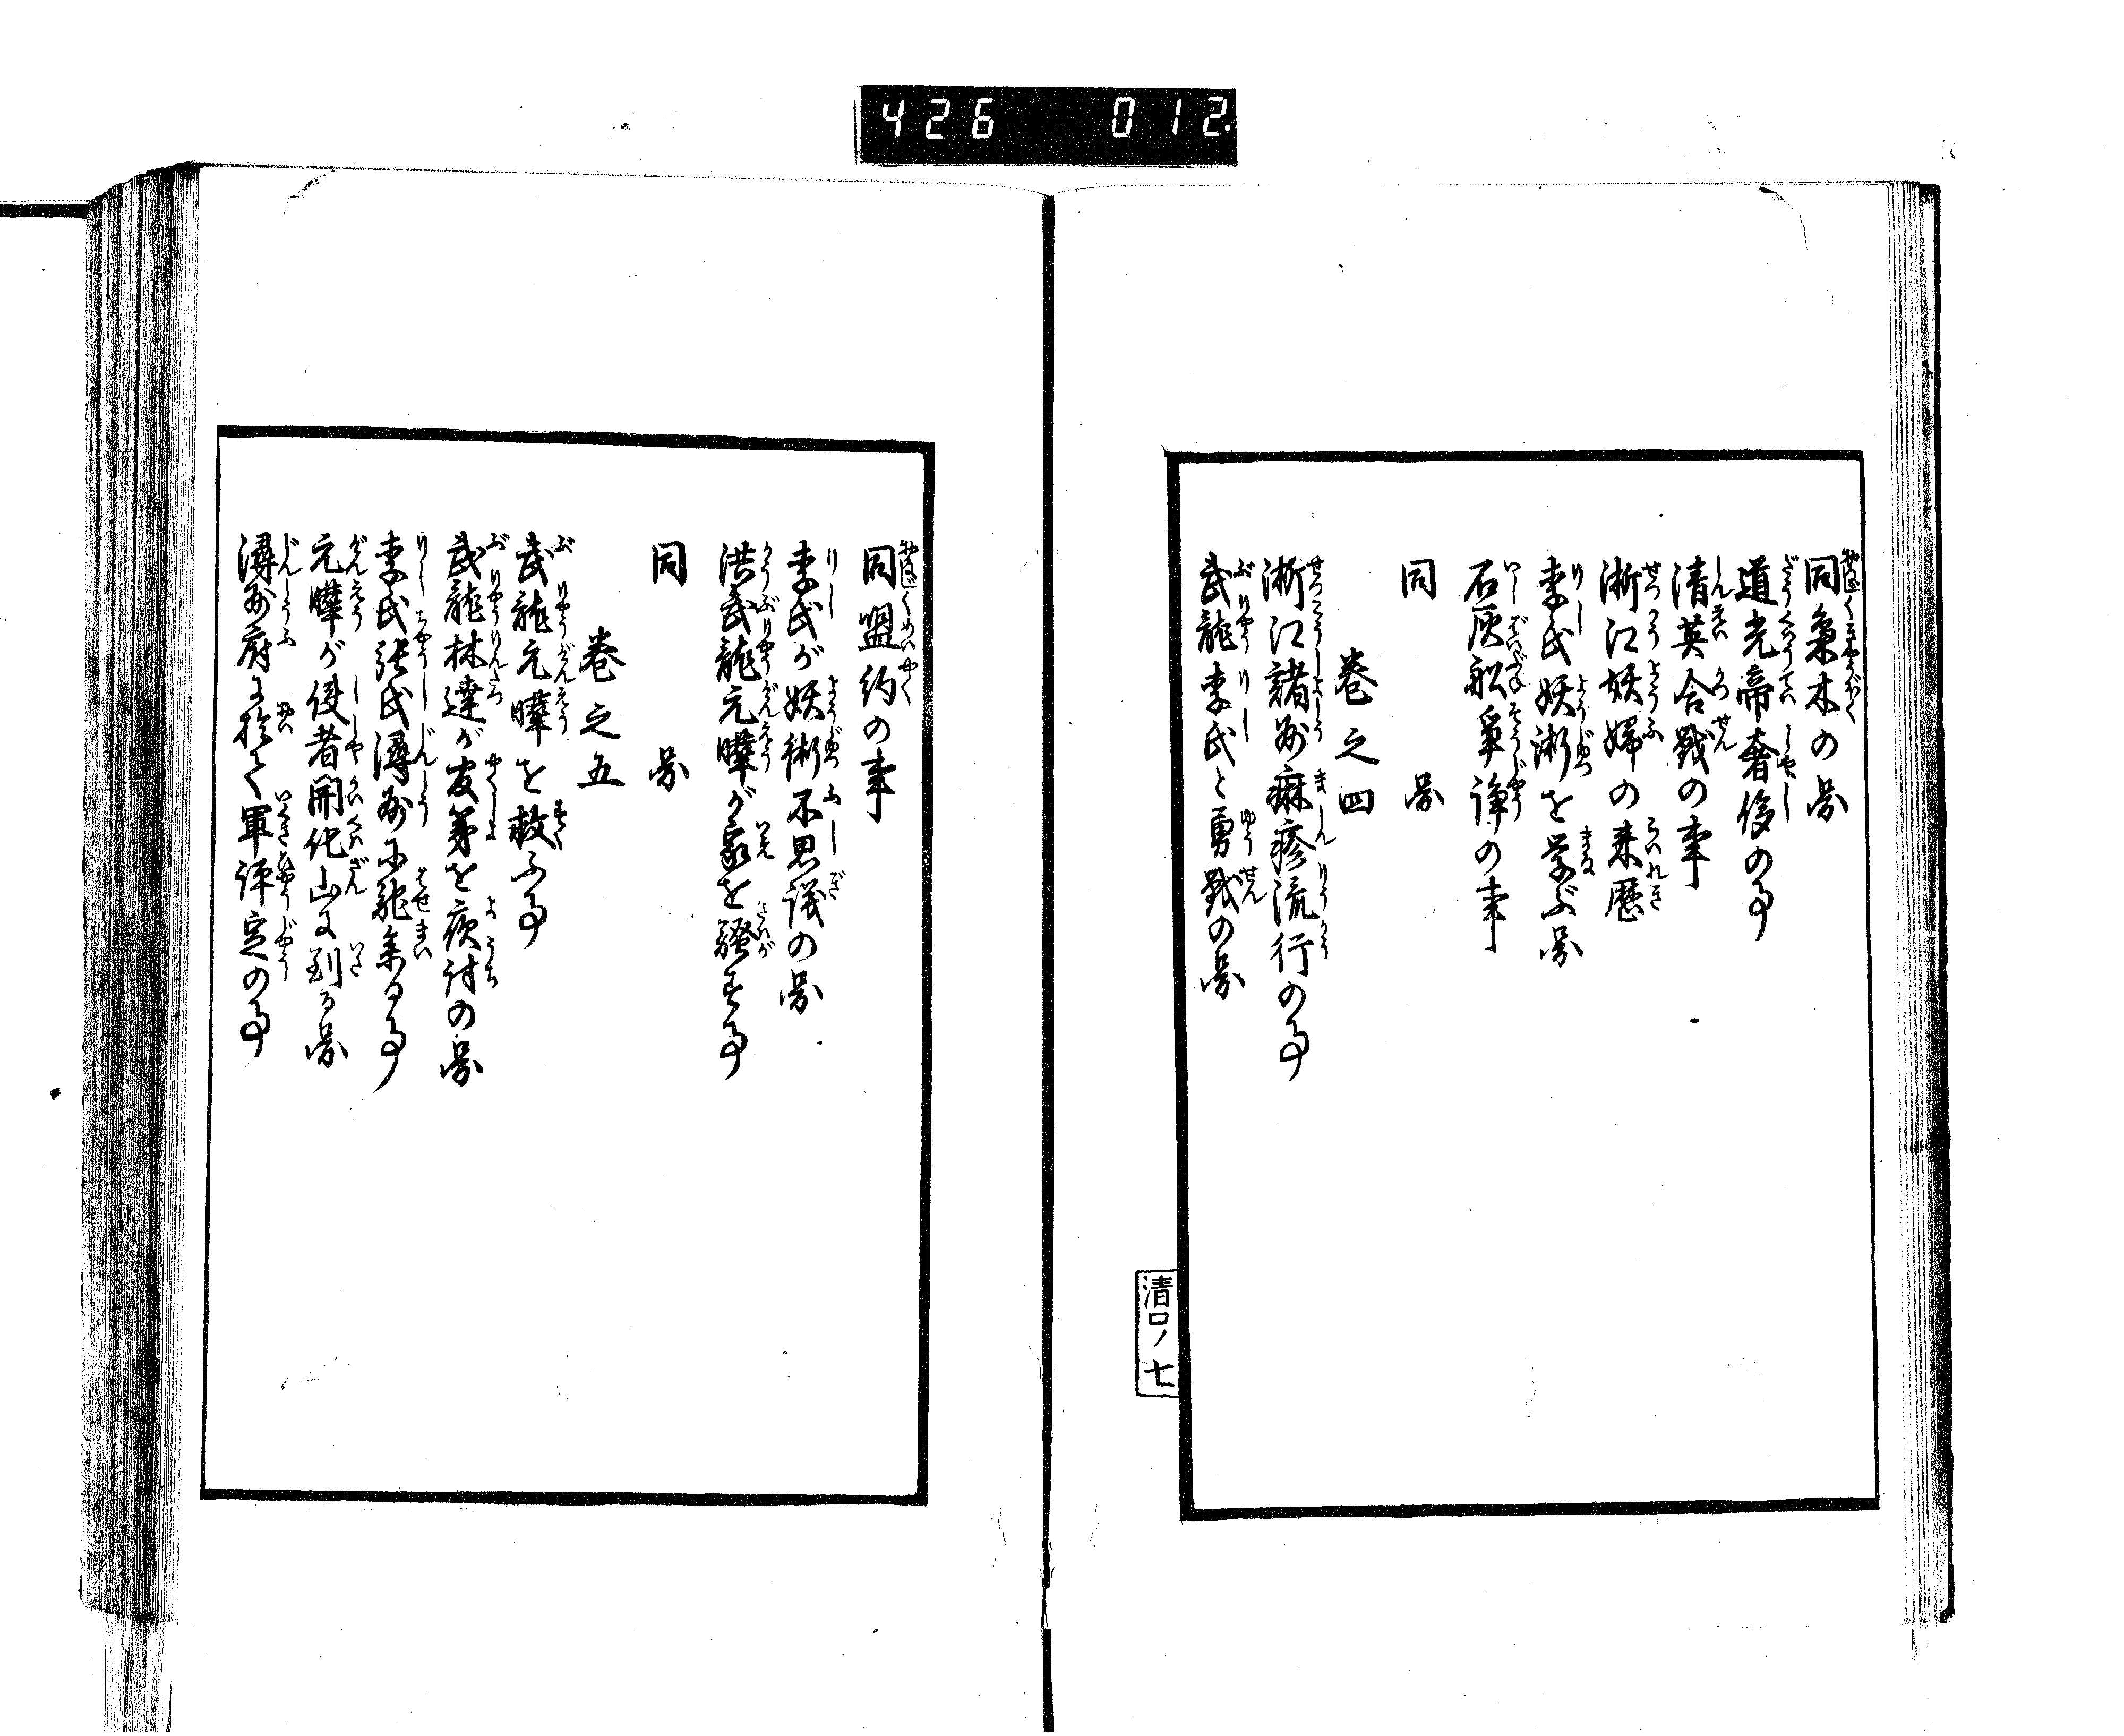 426 012
同梟木の图
道光帝奢侈の事
清英合戦の事
浙江妖婦の来歴
李氏妖術を学ぶ图
石灰船争諍の事
同 图
巻之四
浙江諸州麻疹流行の事
武龍李氏と勇戦の图
清口ノ七
同盟約の事
李氏が妖術不思議の图
洪武龍元曄が家を騒す事
同 图
巻之五
武龍元曄を救ふ事
武龍林達が友弟を夜討の图
李氏張氏潯州に馳集る事
元曄が使者開化山に到る图
潯州府に於て軍評定の事